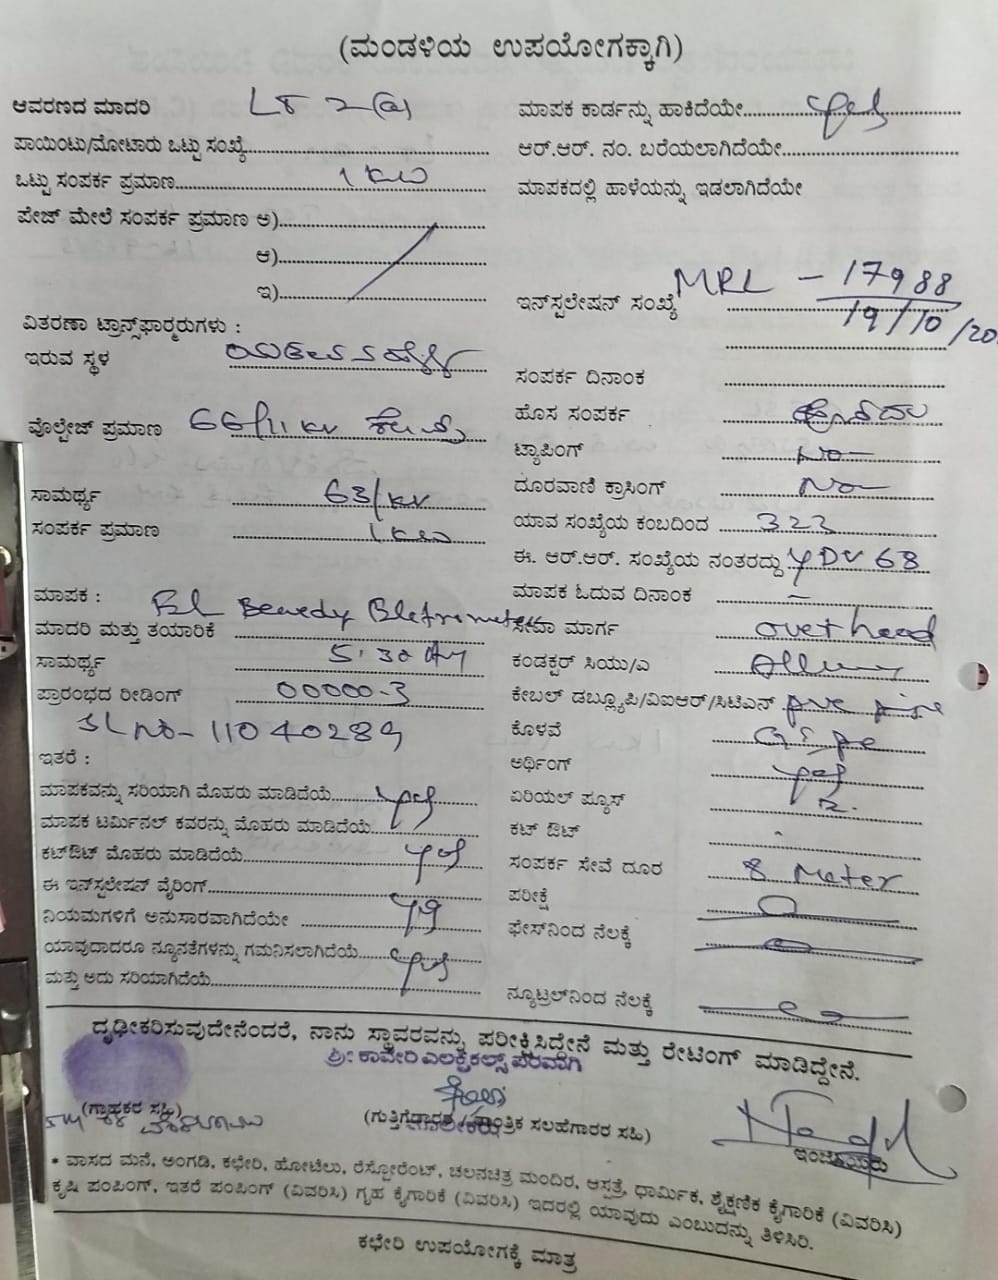 (ಮಂಡಳಿಯ ಉಪಯೋಗಕ್ಕಾಗಿ)
ಆವರಣದ ಮಾದರಿ LT 2(a)
ಪಾಯಿಂಟು/ಮೋಟಾರು ಒಟ್ಟು ಸಂಖ್ಯೆ
ಒಟ್ಟು ಸಂಪರ್ಕ ಪ್ರಮಾಣ 1 KW
ಪೇಜ್ ಮೇಲೆ ಸಂಪರ್ಕ ಪ್ರಮಾಣ ಅ)
ಆ)
ಇ)
ವಿತರಣಾ ಟ್ರಾನ್ಸ್‌ಫಾರ್‍ಮರುಗಳು :
ಇರುವ ಸ್ಥಳ
ವೋಲ್ಟೇಜ್ ಪ್ರಮಾಣ 66/11 KV
ಸಾಮರ್ಥ್ಯ 63/KV
ಸಂಪರ್ಕ ಪ್ರಮಾಣ 1 KW
ಮಾಪಕ :
ಮಾದರಿ ಮತ್ತು ತಯಾರಿಕೆ
ಸಾಮರ್ಥ್ಯ 5-30
ಪ್ರಾರಂಭದ ರೀಡಿಂಗ್ 00000-3
SL No- 11040289
ಇತರೆ :
ಮಾಪಕವನ್ನು ಸರಿಯಾಗಿ ಮೊಹರು ಮಾಡಿದೆಯೆ yes
ಮಾಪಕ ಟರ್ಮಿನಲ್ ಕವರನ್ನು ಮೊಹರು ಮಾಡಿದೆಯೆ
ಕಟ್‌ಔಟ್ ಮೊಹರು ಮಾಡಿದೆಯೆ yes
ಈ ಇನ್‌ಸ್ಟಲೇಷನ್ ವೈರಿಂಗ್
ನಿಯಮಗಳಿಗೆ ಅನುಸಾರವಾಗಿದೆಯೇ yes
ಯಾವುದಾದರೂ ನ್ಯೂನತೆಗಳನ್ನು ಗಮನಿಸಲಾಗಿದೆಯೆ yes
ಮತ್ತು ಅದು ಸರಿಯಾಗಿದೆಯೆ
ಮಾಪಕ ಕಾರ್ಡನ್ನು ಹಾಕಿದೆಯೇ yes
ಆರ್.ಆರ್. ನಂ. ಬರೆಯಲಾಗಿದೆಯೇ
ಮಾಪಕದಲ್ಲಿ ಹಾಳೆಯನ್ನು ಇಡಲಾಗಿದೆಯೇ
ಇನ್‌ಸ್ಟಲೇಷನ್ ಸಂಖ್ಯೆ MRL - 17988
19/10/20
ಸಂಪರ್ಕ ದಿನಾಂಕ
ಹೊಸ ಸಂಪರ್ಕ
ಟ್ಯಾಪಿಂಗ್ No
ದೂರವಾಣಿ ಕ್ರಾಸಿಂಗ್ No
ಯಾವ ಸಂಖ್ಯೆಯ ಕಂಬದಿಂದ 323
ಈ. ಆರ್.ಆರ್. ಸಂಖ್ಯೆಯ ನಂತರದ್ದು YDV 68
ಮಾಪಕ ಓದುವ ದಿನಾಂಕ -
ಸೇವಾ ಮಾರ್ಗ over head
ಕಂಡಕ್ಟರ್ ಸಿಯು/ಎ
ಕೇಬಲ್ ಡಬ್ಲ್ಯೂಪಿ/ವಿಐಆರ್/ಸಿಟಿಎನ್ pvc pipe
ಕೊಳವೆ GI pipe
ಅರ್ಥಿಂಗ್ yes
ಏರಿಯಲ್ ಪ್ಯೂಸ್
ಕಟ್ ಔಟ್
ಸಂಪರ್ಕ ಸೇವೆ ದೂರ 8 Meter
ಪರೀಕ್ಷೆ
ಫೇಸ್‌ನಿಂದ ನೆಲಕ್ಕೆ
ನ್ಯೂಟ್ರಲ್‌ನಿಂದ ನೆಲಕ್ಕೆ
ದೃಢೀಕರಿಸುವುದೇನೆಂದರೆ, ನಾನು ಸ್ಥಾವರವನ್ನು ಪರೀಕ್ಷಿಸಿದ್ದೇನೆ ಮತ್ತು ರೇಟಿಂಗ್ ಮಾಡಿದ್ದೇನೆ.
ಶ್ರೀ ಕಾವೇರಿ ಎಲಕ್ಟ್ರಿಕಲ್ಸ್ ಪರವಾಗಿ
(ಗ್ರಾಹಕರ ಸಹಿ)
(ಗುತ್ತಿಗೆದಾರರ / ತಾಂತ್ರಿಕ ಸಲಹೆಗಾರರ ಸಹಿ)
ಇಂಜಿನಿಯರು
* ವಾಸದ ಮನೆ, ಅಂಗಡಿ, ಕಛೇರಿ, ಹೋಟೆಲು, ರೆಸ್ಟೋರೆಂಟ್, ಚಲನಚಿತ್ರ ಮಂದಿರ, ಆಸ್ಪತ್ರೆ, ಧಾರ್ಮಿಕ, ಶೈಕ್ಷಣಿಕ ಕೈಗಾರಿಕೆ (ವಿವರಿಸಿ)
ಕೃಷಿ ಪಂಪಿಂಗ್, ಇತರೆ ಪಂಪಿಂಗ್ (ವಿವರಿಸಿ) ಗೃಹ ಕೈಗಾರಿಕೆ (ವಿವರಿಸಿ) ಇದರಲ್ಲಿ ಯಾವುದು ಎಂಬುದನ್ನು ತಿಳಿಸಿರಿ.
ಕಛೇರಿ ಉಪಯೋಗಕ್ಕೆ ಮಾತ್ರ